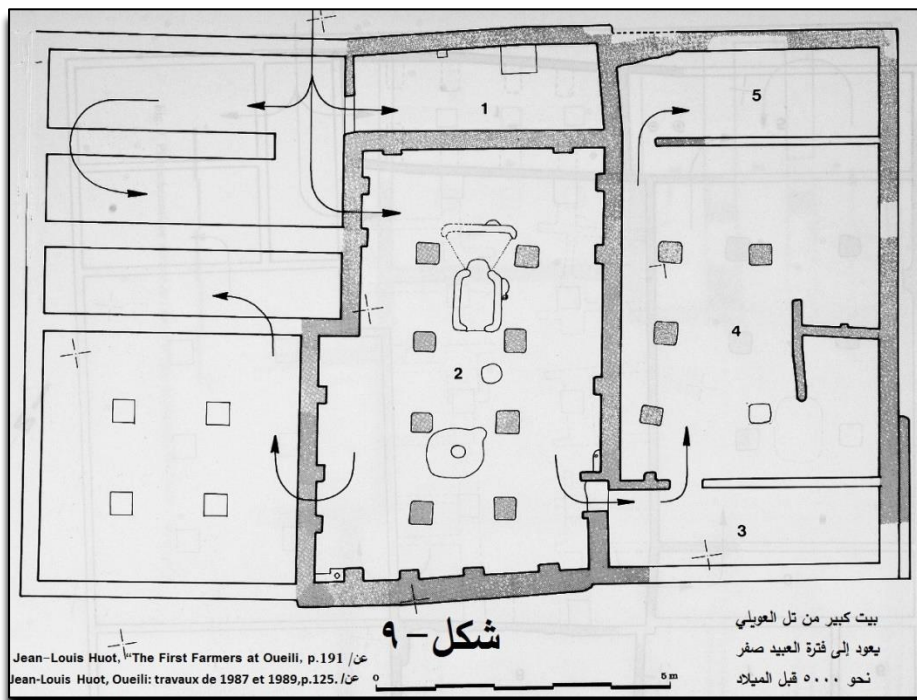 1
5
2
4
3
شكل-٩
بيت كبير من تل العويلي
يعود إلى فترة العبيد صفر
نحو ٥٠٠٠ قبل الميلاد
Jean-Louis Huot, "The First Farmers at Oueili, p.191 /عن
Jean-Louis Huot, Oueili: travaux de 1987 et 1989,p.125. /عن
0 5m